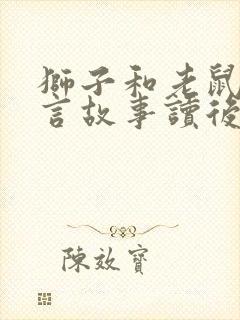 獅子和老鼠
言故事讀後
陳效寶